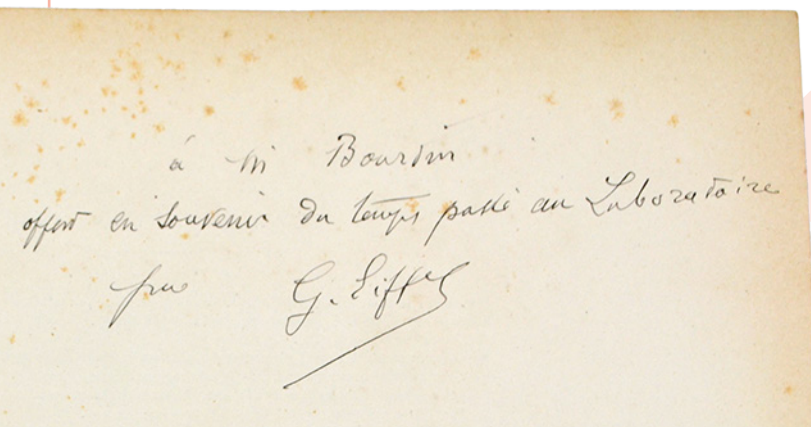 à Mr Bourdin
offert en souvenir du temps passé au Laboratoire
par G. Eiffel